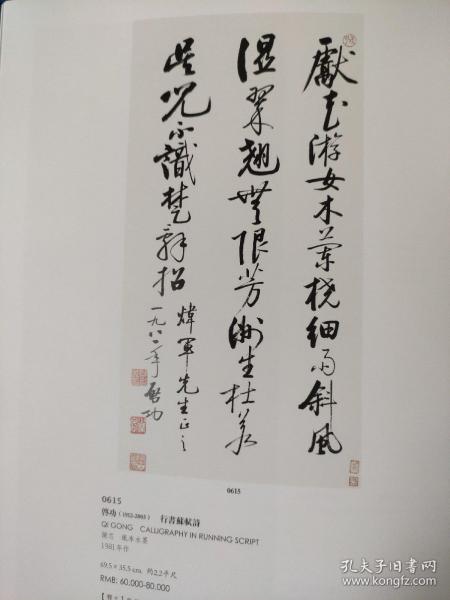 獻花游女木蘭橈細雨斜風
湿翠翹無限芳洲生杜若
吴兒不識楚辭招
煒軍先生正之
一九八一年 啓功
0615
0615
啓功(1912-2005) 行書蘇軾詩
QI GONG CALLIGRAPHY IN RUNNING SCRIPT
鏡芯 紙本水墨
1981年作
69.5×35.5 cm. 約2.2平尺
RMB: 60,000-80,000
孔夫子旧书网